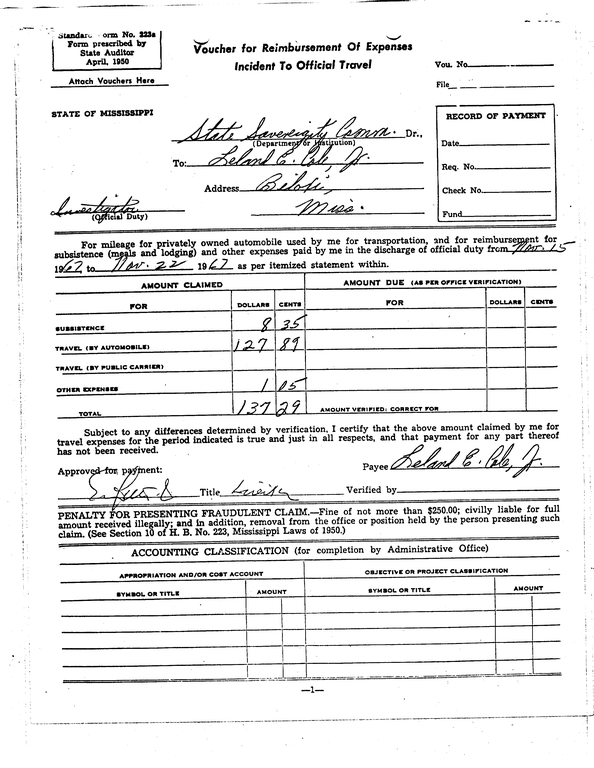 Standard Form No. 223a
Form prescribed by
State Auditor
April, 1950
Attach Vouchers Here
Voucher for Reimbursement Of Expenses
Incident To Official Travel
Vou. No.
File
STATE OF MISSISSIPPI
RECORD OF PAYMENT
Date
Req. No.
Check No.
Fund
State Sovereignty Comm. Dr.,
(Department or Institution)
To: Leland E. Cole, Jr.
Address Biloxi,
Miss.
Investigator
(Official Duty)
For mileage for privately owned automobile used by me for transportation, and for reimbursement for
subsistence (meals and lodging) and other expenses paid by me in the discharge of official duty from Nov. 15
1967 to Nov. 22 1967 as per itemized statement within.
AMOUNT CLAIMED
AMOUNT DUE (AS PER OFFICE VERIFICATION)
FOR DOLLARS CENTS FOR DOLLARS CENTS
SUBSISTENCE 8 35
TRAVEL (BY AUTOMOBILE) 127 89
TRAVEL (BY PUBLIC CARRIER)
OTHER EXPENSES 1 05
TOTAL 137 29 AMOUNT VERIFIED: CORRECT FOR
Subject to any differences determined by verification, I certify that the above amount claimed by me for
travel expenses for the period indicated is true and just in all respects, and that payment for any part thereof
has not been received.
Payee Leland E. Cole, Jr.
Approved for payment:
Title Verified by
PENALTY FOR PRESENTING FRAUDULENT CLAIM.—Fine of not more than $250.00; civilly liable for full
amount received illegally; and in addition, removal from the office or position held by the person presenting such
claim. (See Section 10 of H. B. No. 223, Mississippi Laws of 1950.)
ACCOUNTING CLASSIFICATION (for completion by Administrative Office)
APPROPRIATION AND/OR COST ACCOUNT
OBJECTIVE OR PROJECT CLASSIFICATION
SYMBOL OR TITLE AMOUNT SYMBOL OR TITLE AMOUNT
—1—